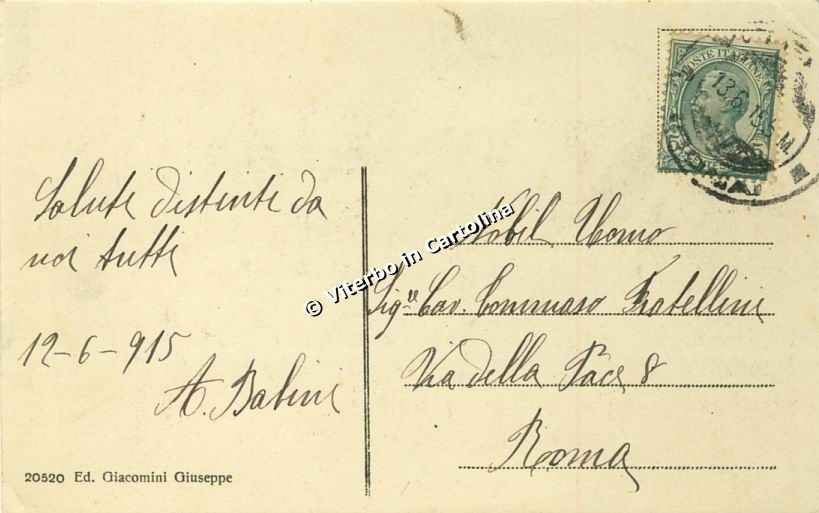 POSTE ITALIANE
13.6.15
Salute distinte da
noi tutti
12-6-915
A. Babini
Nobil Uomo
Sig.re Cav. Tommaso Fratellini
Via della Pace 8
Roma
20520 Ed. Giacomini Giuseppe
© Viterbo in Cartolina